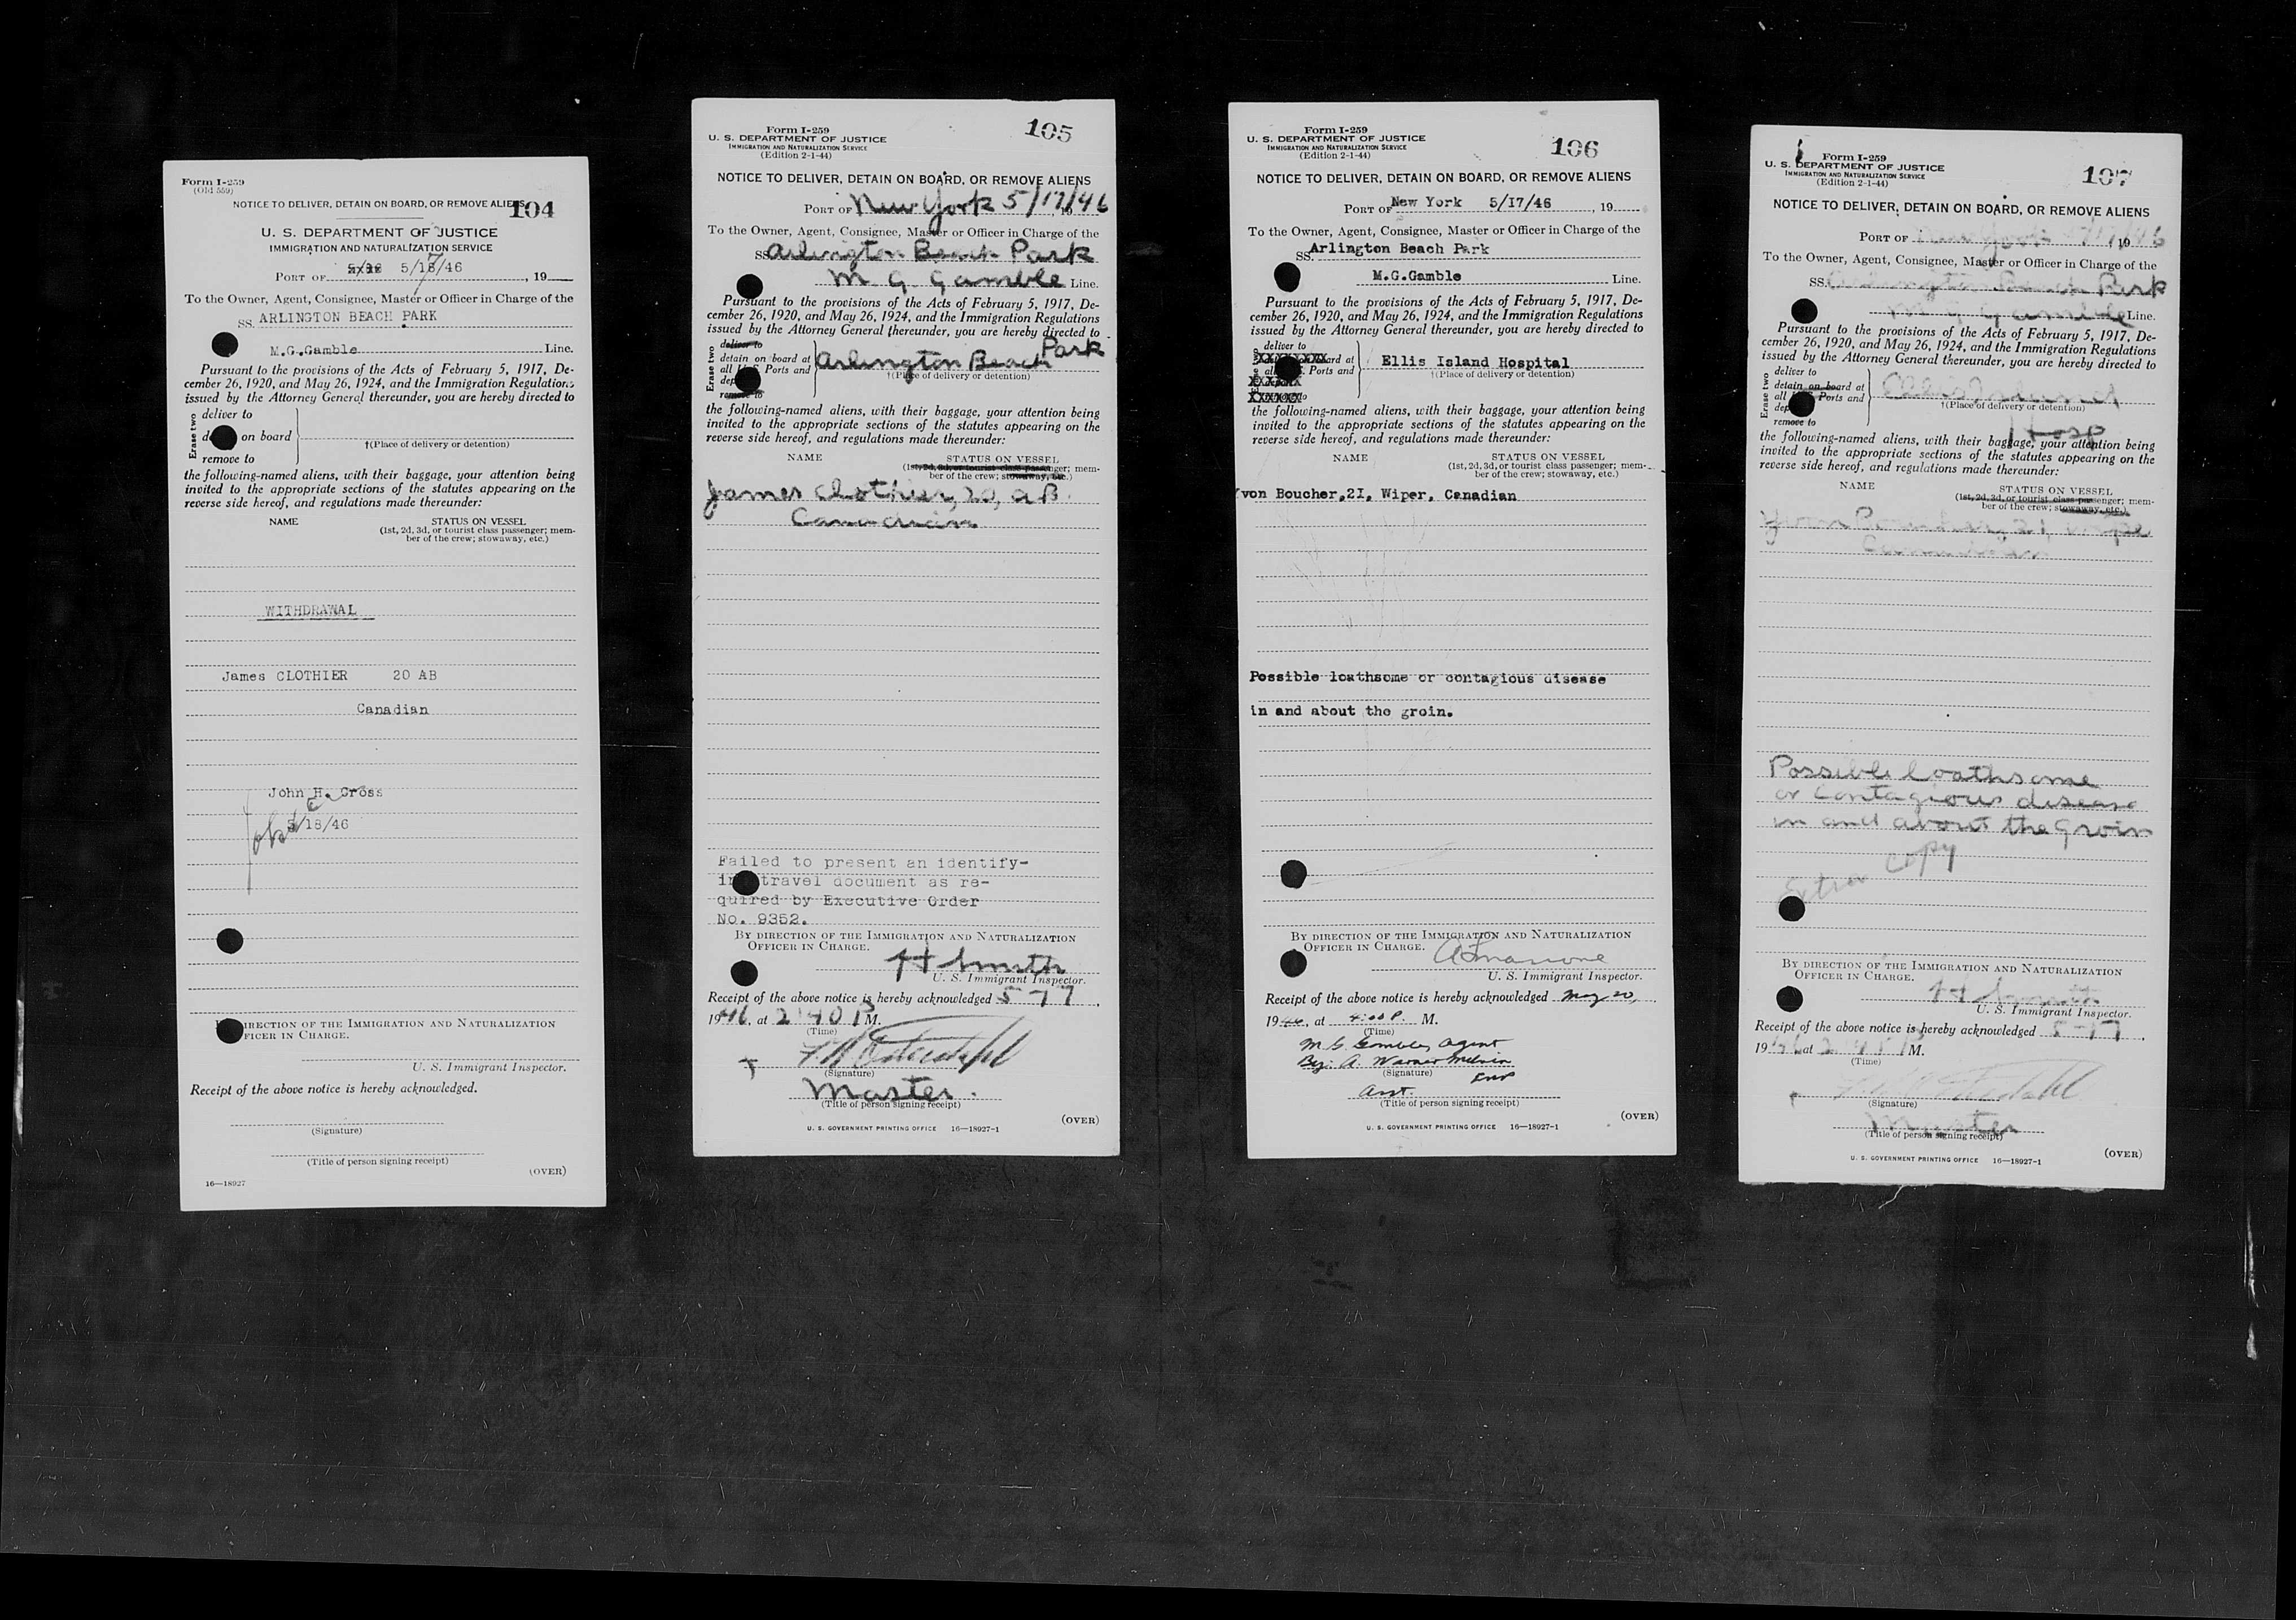 Form I-259
(Old 559)
NOTICE TO DELIVER, DETAIN ON BOARD, OR REMOVE ALIENS
104
U. S. DEPARTMENT OF JUSTICE
IMMIGRATION AND NATURALIZATION SERVICE
PORT OF 5/18/46 , 19
To the Owner, Agent, Consignee, Master or Officer in Charge of the
SS. ARLINGTON BEACH PARK
M.G.Gamble Line.
Pursuant to the provisions of the Acts of February 5, 1917, De-
cember 26, 1920, and May 26, 1924, and the Immigration Regulations
issued by the Attorney General thereunder, you are hereby directed to
Erase two
deliver to
on board
remove to
†(Place of delivery or detention)
the following-named aliens, with their baggage, your attention being
invited to the appropriate sections of the statutes appearing on the
reverse side hereof, and regulations made thereunder:
NAME STATUS ON VESSEL
(1st, 2d, 3d, or tourist class passenger; mem-
ber of the crew; stowaway, etc.)
WITHDRAWAL
James CLOTHIER 20 AB
Canadian
John H. Cross
5/18/46
DIRECTION OF THE IMMIGRATION AND NATURALIZATION
OFFICER IN CHARGE.
U. S. Immigrant Inspector.
Receipt of the above notice is hereby acknowledged.
(Signature)
(Title of person signing receipt)
(OVER)
16—18927
Form I-259
U. S. DEPARTMENT OF JUSTICE
IMMIGRATION AND NATURALIZATION SERVICE
(Edition 2-1-44)
105
NOTICE TO DELIVER, DETAIN ON BOARD, OR REMOVE ALIENS
PORT OF New York 5/17/46
To the Owner, Agent, Consignee, Master or Officer in Charge of the
SS Arlington Beach Park
M. G. Gamble Line.
Pursuant to the provisions of the Acts of February 5, 1917, De-
cember 26, 1920, and May 26, 1924, and the Immigration Regulations
issued by the Attorney General thereunder, you are hereby directed to
Erase two
deliver to
detain on board at
all U.S. Ports and
remove to
Arlington Beach Park
†(Place of delivery or detention)
the following-named aliens, with their baggage, your attention being
invited to the appropriate sections of the statutes appearing on the
reverse side hereof, and regulations made thereunder:
NAME STATUS ON VESSEL
(1st, 2d, 3d, or tourist class passenger; mem-
ber of the crew; stowaway, etc.)
James Clothier, 20, AB.
Canadian
Failed to present an identify-
ing travel document as re-
quired by Executive Order
No. 9352.
BY DIRECTION OF THE IMMIGRATION AND NATURALIZATION
OFFICER IN CHARGE.
H Smith
U. S. Immigrant Inspector.
Receipt of the above notice is hereby acknowledged 5-17,
1946, at 2 40 P M.
(Time)
(Signature)
Master.
(Title of person signing receipt)
(OVER)
U. S. GOVERNMENT PRINTING OFFICE 16—18927-1
Form I-259
U. S. DEPARTMENT OF JUSTICE
IMMIGRATION AND NATURALIZATION SERVICE
(Edition 2-1-44)
106
NOTICE TO DELIVER, DETAIN ON BOARD, OR REMOVE ALIENS
PORT OF New York 5/17/46 , 19
To the Owner, Agent, Consignee, Master or Officer in Charge of the
SS. Arlington Beach Park
M.G.Gamble Line.
Pursuant to the provisions of the Acts of February 5, 1917, De-
cember 26, 1920, and May 26, 1924, and the Immigration Regulations
issued by the Attorney General thereunder, you are hereby directed to
deliver to
Ports and
Ellis Island Hospital
†(Place of delivery or detention)
the following-named aliens, with their baggage, your attention being
invited to the appropriate sections of the statutes appearing on the
reverse side hereof, and regulations made thereunder:
NAME STATUS ON VESSEL
(1st, 2d, 3d, or tourist class passenger; mem-
ber of the crew; stowaway, etc.)
Yvon Boucher,21, Wiper, Canadian
Possible loathsome or contagious disease
in and about the groin.
BY DIRECTION OF THE IMMIGRATION AND NATURALIZATION
OFFICER IN CHARGE.
U. S. Immigrant Inspector.
Receipt of the above notice is hereby acknowledged May 20,
1946, at 4:00 P. M.
(Time)
M. G. Gamble, Agent
By: A. Warner
(Signature)
Asst.
(Title of person signing receipt)
(OVER)
U. S. GOVERNMENT PRINTING OFFICE 16—18927-1
Form I-259
U. S. DEPARTMENT OF JUSTICE
IMMIGRATION AND NATURALIZATION SERVICE
(Edition 2-1-44)
107
NOTICE TO DELIVER, DETAIN ON BOARD, OR REMOVE ALIENS
PORT OF New York 5/17/46
To the Owner, Agent, Consignee, Master or Officer in Charge of the
SS. Arlington Beach Park
M G Gamble Line.
Pursuant to the provisions of the Acts of February 5, 1917, De-
cember 26, 1920, and May 26, 1924, and the Immigration Regulations
issued by the Attorney General thereunder, you are hereby directed to
Erase two
deliver to
detain on board at
all Ports and
remove to
Ellis Island
†(Place of delivery or detention)
Hosp
the following-named aliens, with their baggage, your attention being
invited to the appropriate sections of the statutes appearing on the
reverse side hereof, and regulations made thereunder:
NAME STATUS ON VESSEL
(1st, 2d, 3d, or tourist class passenger; mem-
ber of the crew; stowaway, etc.)
Yvon Boucher, 21, wiper
Canadian
Possible loathsome
or contagious disease
in and about the groin
Extra Copy
BY DIRECTION OF THE IMMIGRATION AND NATURALIZATION
OFFICER IN CHARGE.
H Smith
U. S. Immigrant Inspector.
Receipt of the above notice is hereby acknowledged 5-17
1946 at 2 45 P M.
(Time)
(Signature)
Master
(Title of person signing receipt)
(OVER)
U. S. GOVERNMENT PRINTING OFFICE 16—18927-1